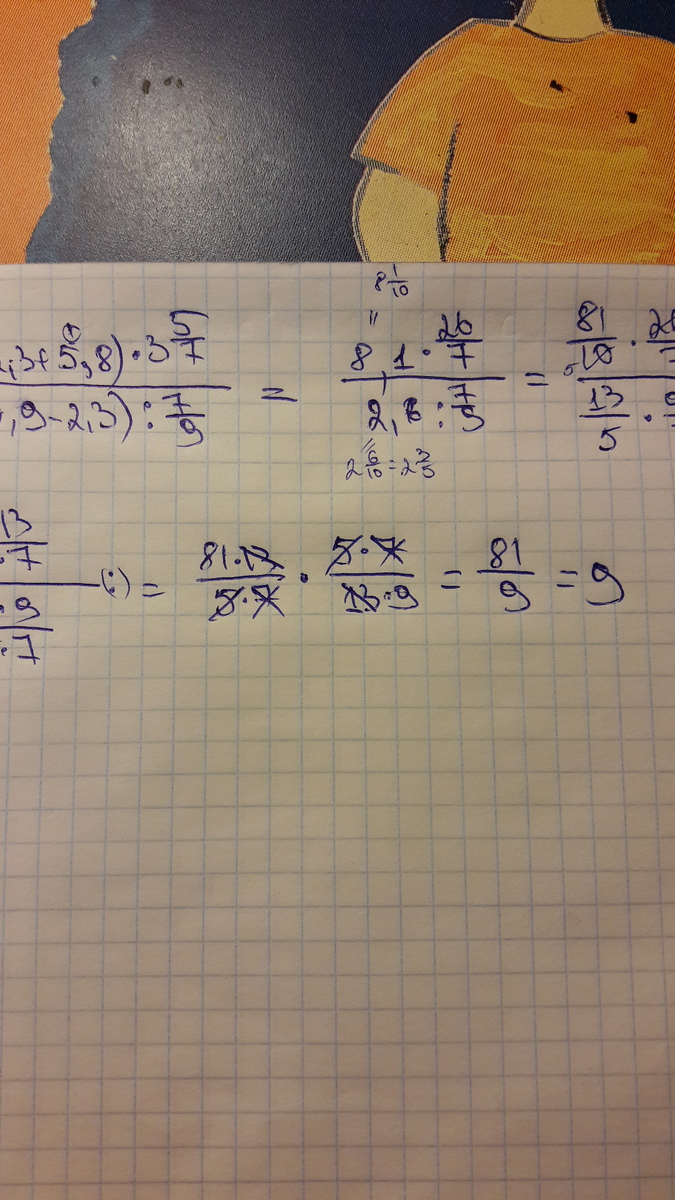 8 1/10
,3+5,8)·3 5/7 / ,9-2,3):7/9 = 8,1·26/7 / 2,6:7/9 = 81/10· / 13/5·
2 6/10=2 3/5
13/·7 / ·9/·7 (:) = 81·13/5·7 · 5·7/13·9 = 81/9 = 9